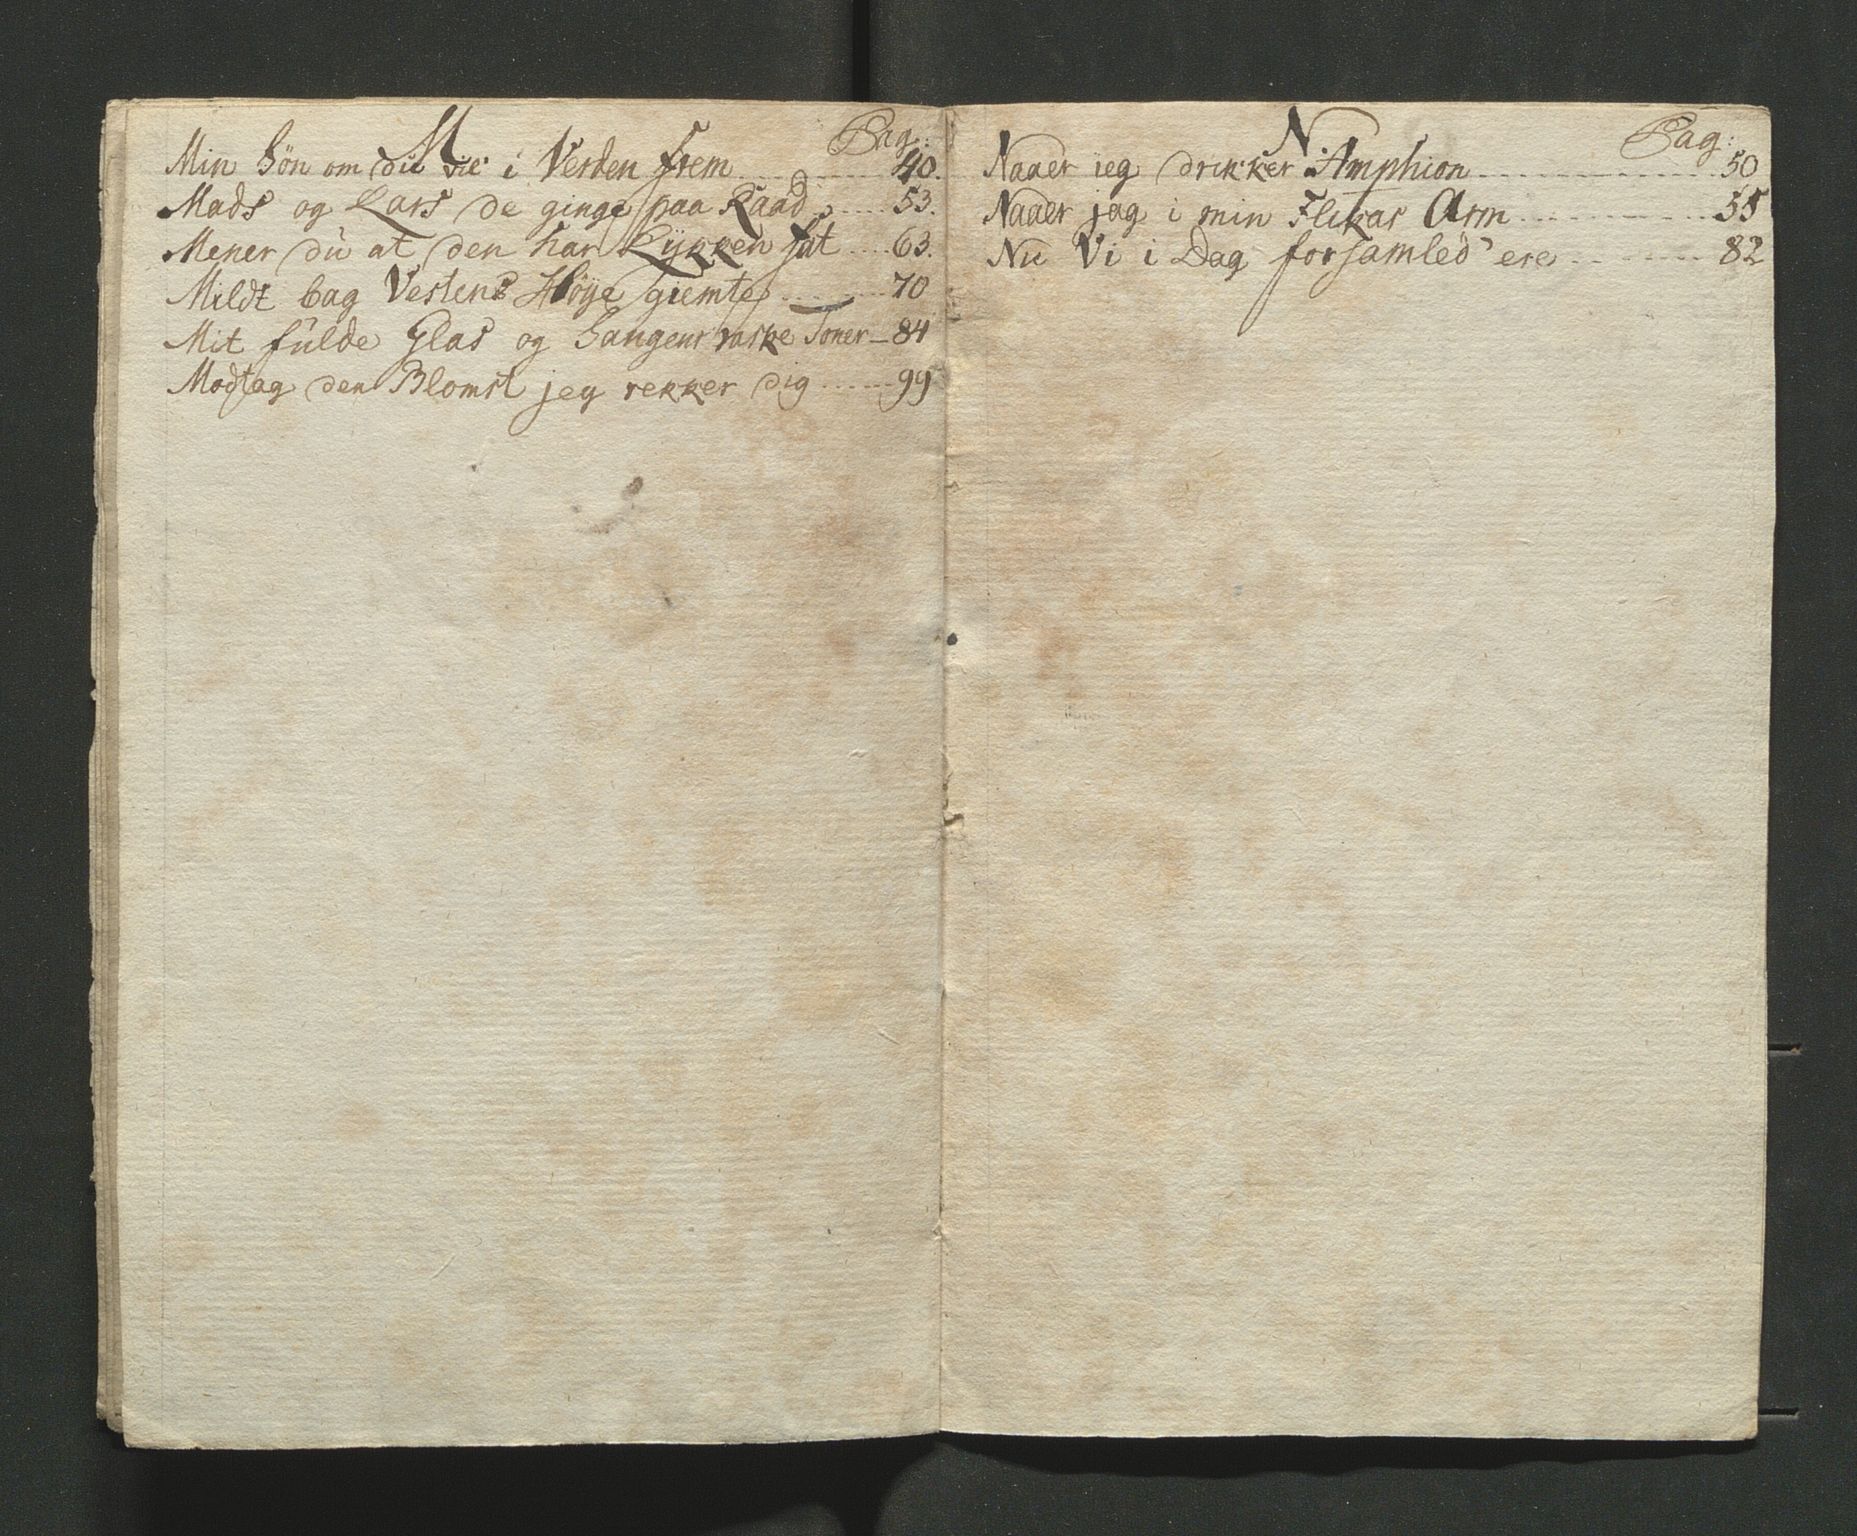 M Pag:
Min Sön om du vil i Verden frem 40.
Mads og Lars de ginge paa Raad 53.
Mener du at den har Lykken fat 63.
Mildt bag Vestens Höye giemte 70
Mit fulde Glas og Sangens raske Toner 84
Modtag den Blomst jeg rekker dig 99
N Pag:
Naaer jeg drikker Amphion 50
Naaer jag i min Flikas Arm 55
Nu Vi i Dag forsamled' ere 82